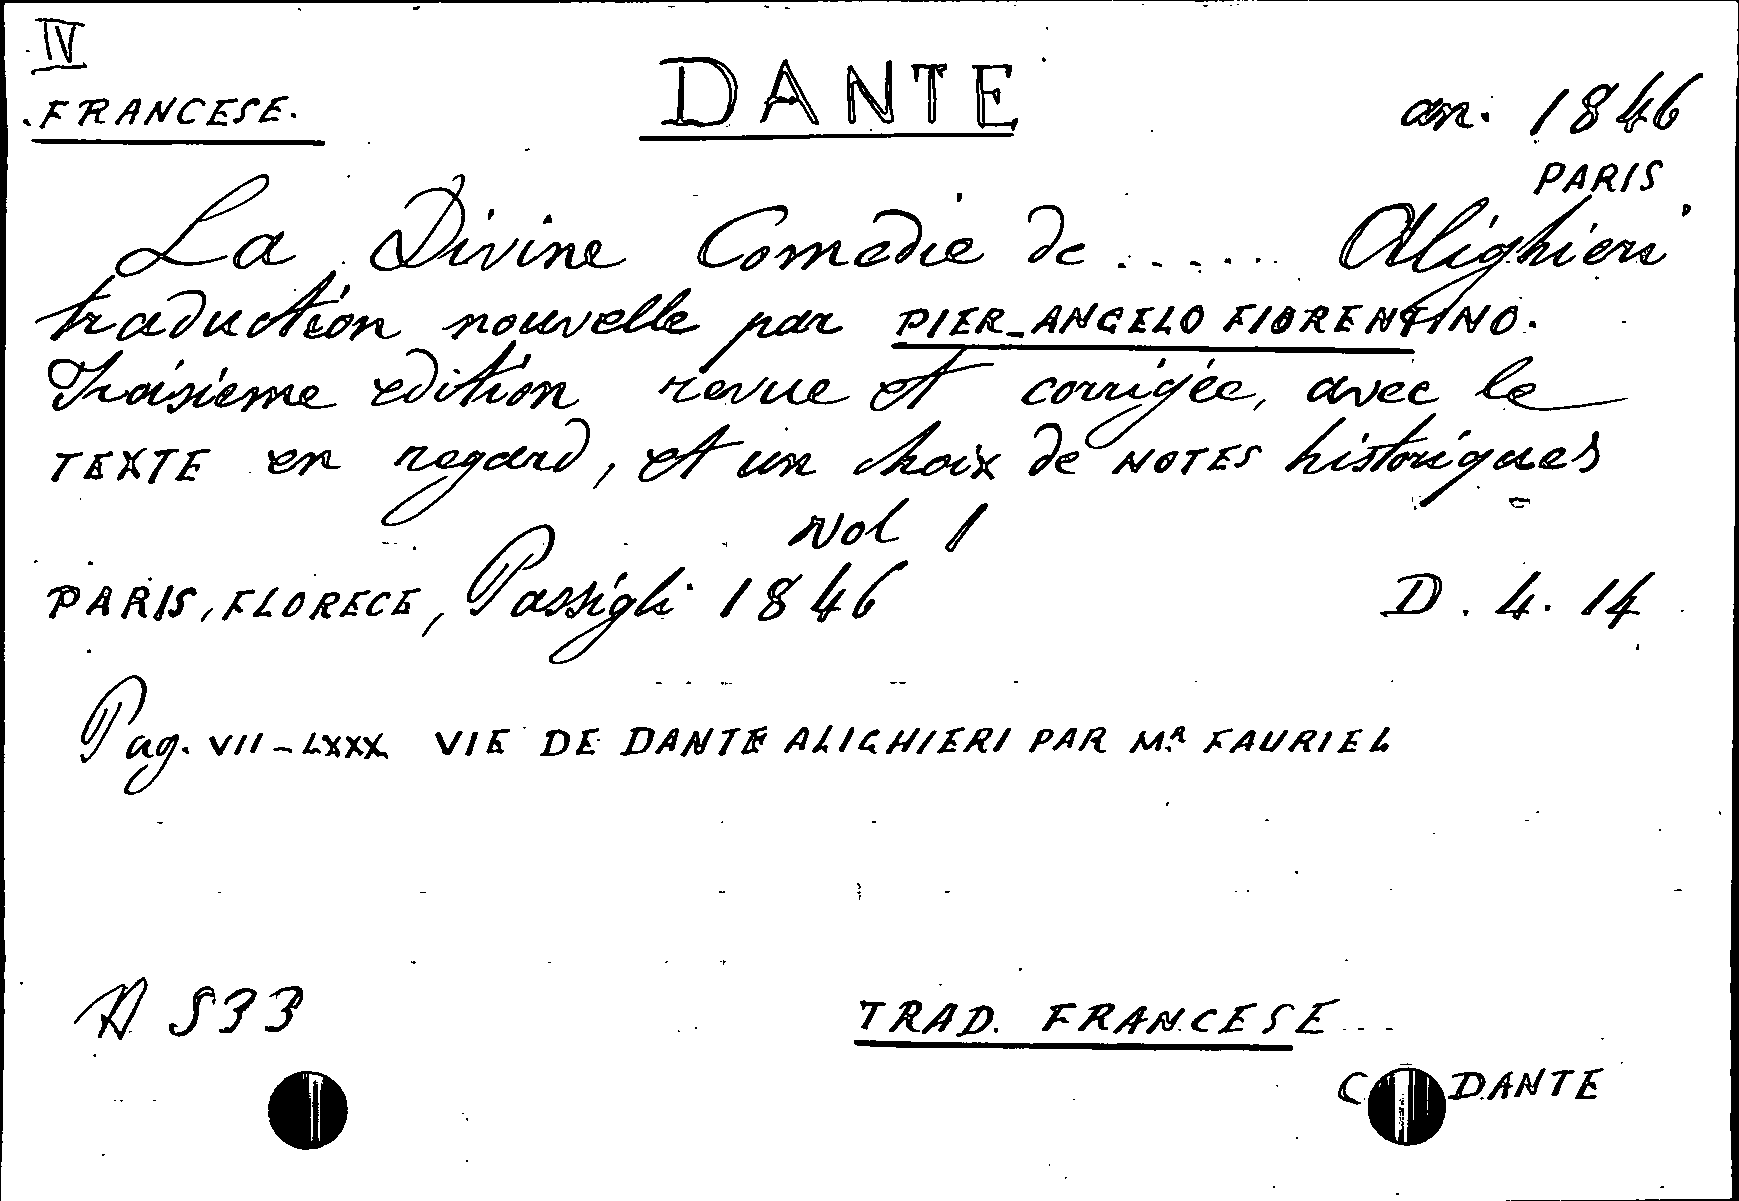 IV
FRANCESE.
DANTE
an. 1846
PARIS
La Divine Comedie de ...... Alighieri
traduction nouvelle par PIER-ANGELO FIORENTINO.
Troisieme edition revue et corrigée, avec le
TEXTE en regard, et un choix de NOTES historiques
Vol 1
PARIS, FLORECE, Passigli 1846
D. 4. 14
Pag. VII-LXXX VIE DE DANTE ALIGHIERI PAR Mr FAURIEL
A 533
TRAD. FRANCESE
DANTE